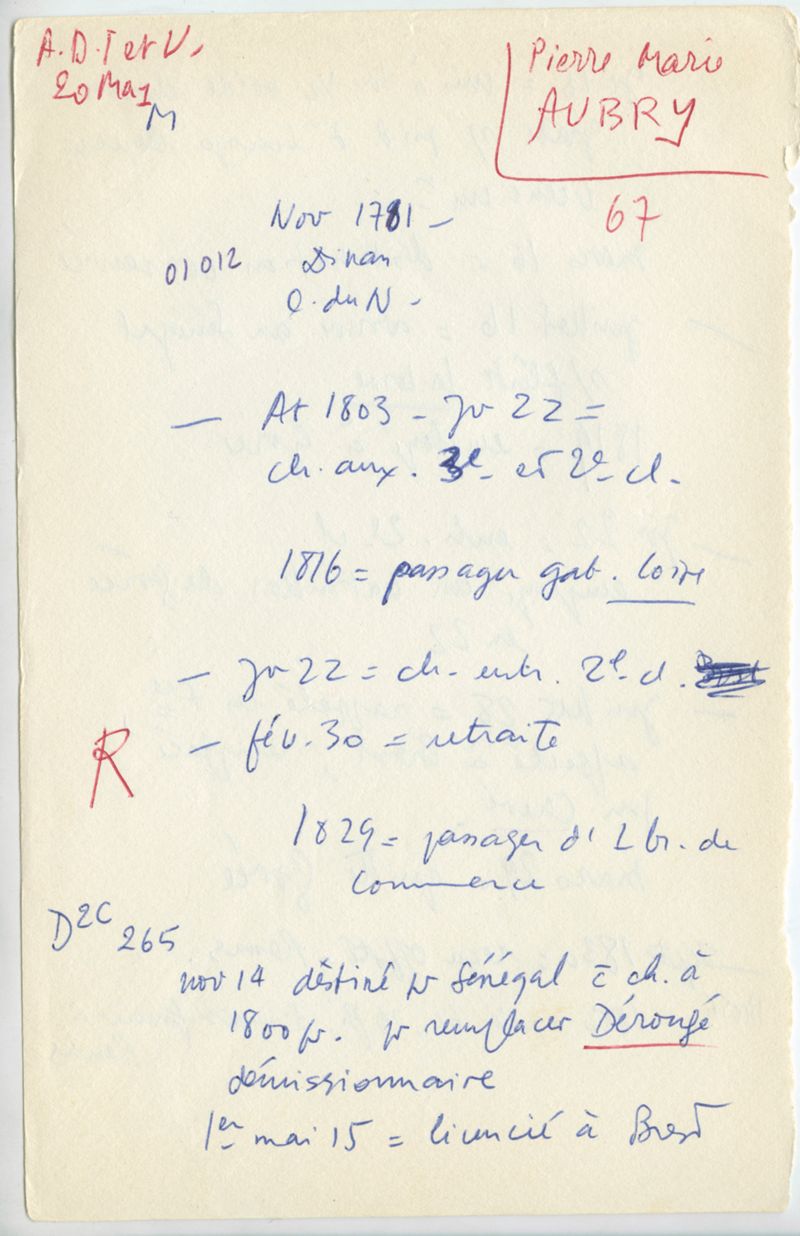 A.D. I et V.
20 Ma1
M
Pierre Marie
AUBRY
67
Nov 1781 –
01012
Dinan
C. du N –
— At 1803 – Jv 22 =
ch. aux. 3e – et 2e – cl.
1816 = passager gab. Loire
— Jv 22 = ch. entr. 2e cl.
R
— fév. 30 = retraite
1829 = passager d' 1 br. de
commerce
D2C 265
nov 14 destiné pr Sénégal c̄ ch. à
1800 fr. pr remplacer Dérougé
démissionnaire
1er mai 15 = licencié à Brest